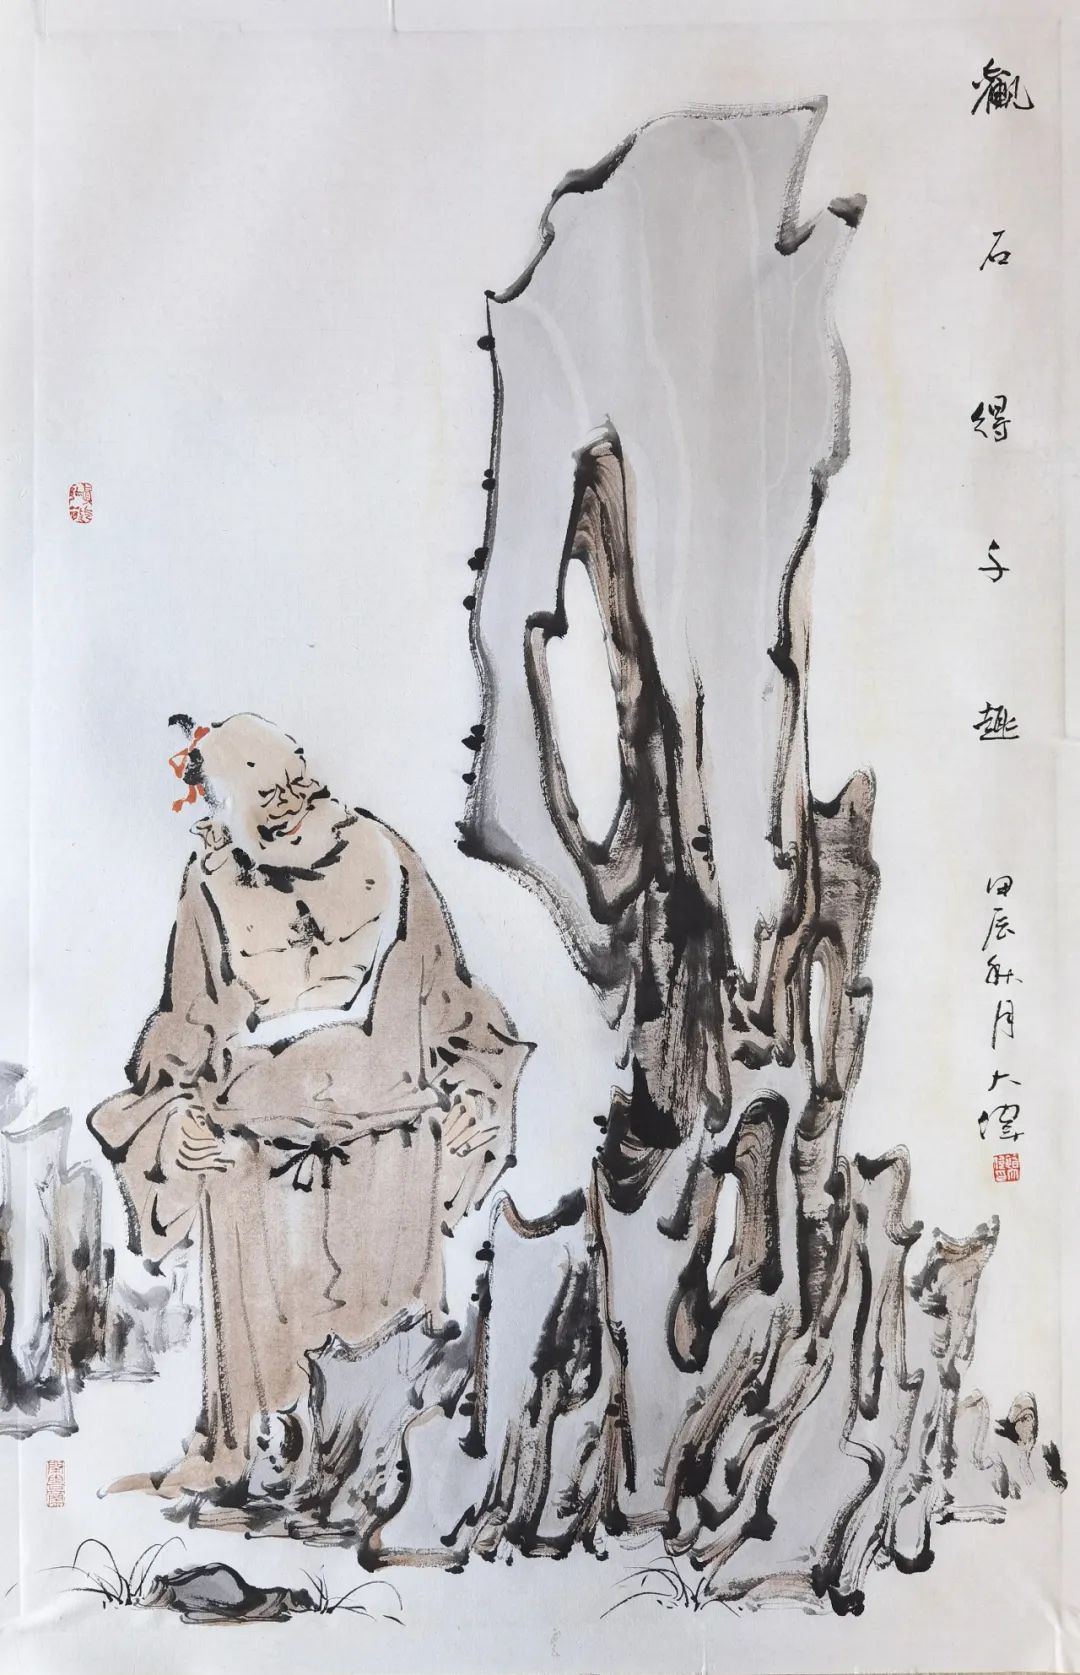 觀石得趣
甲辰秋月大偉